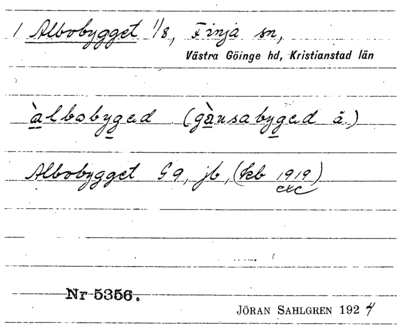 1 Albobygget 1/8, Finja sn,
Västra Göinge hd, Kristianstad län
àlbobyged (gànsabyged ä.)
Albobygget Gg, jb, (kb 1919)
Nr 5356.
JÖRAN SAHLGREN 1924